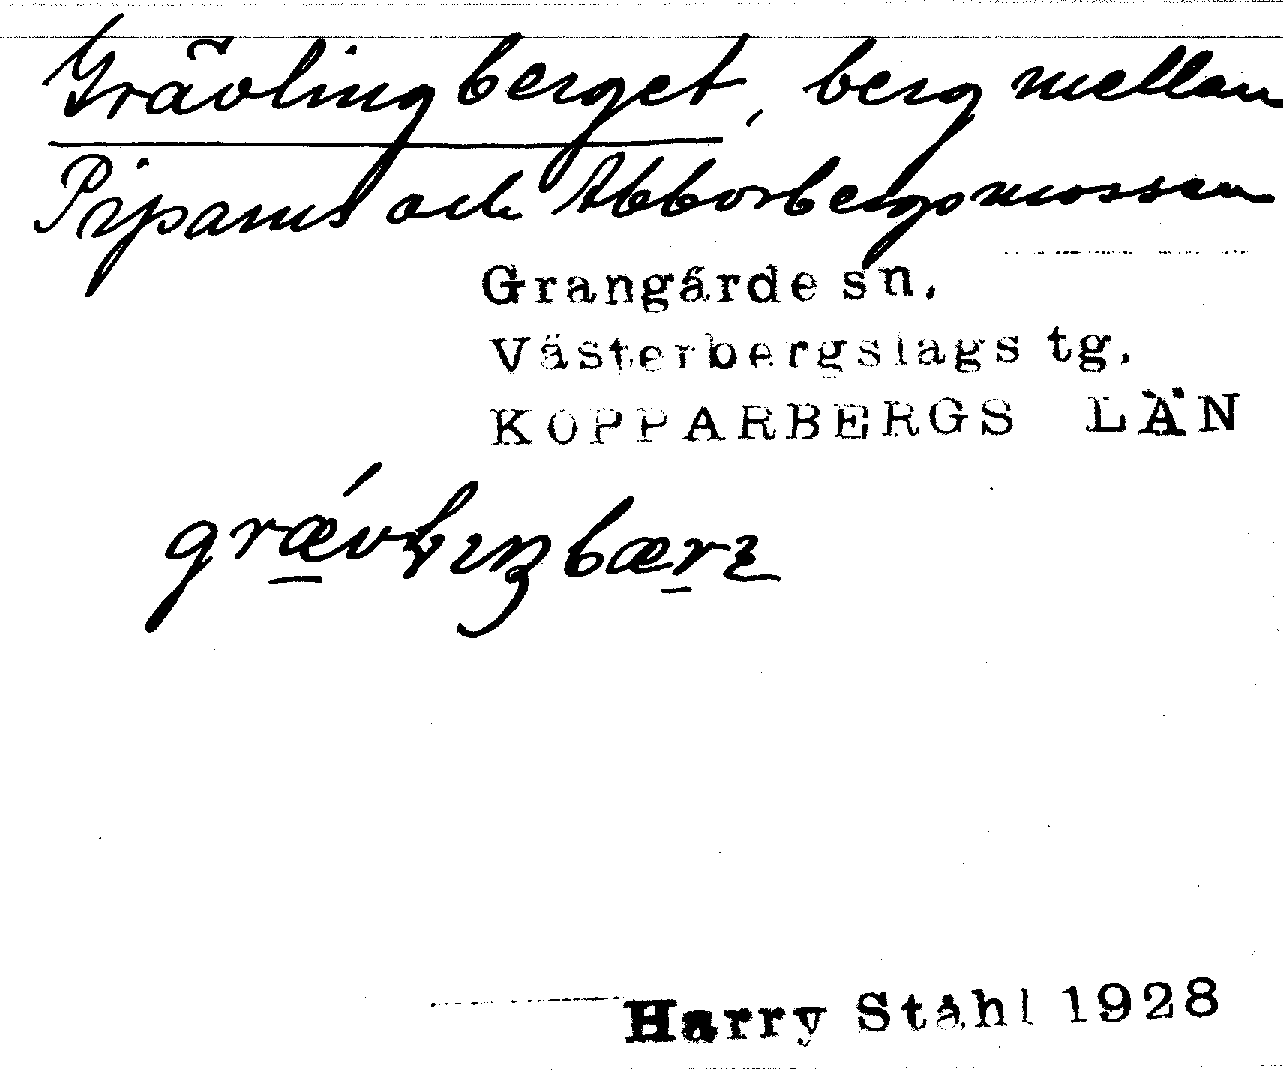 Grävlingberget, berg mellan
och Abborbergsmossen
Grangärde sn.
Västerbergslags tg.
KOPPARBERGS LÄN
Harry Ståhl 1928